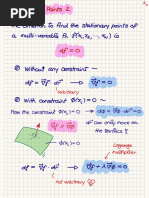 Points 2.
The condition to find the stationary points of
a multi-variable fn f(x₁, x₂, …, xₙ) is
df = 0
① Without any constraint –
df = ∇f · dr → ∇f = 0
arbitrary
② With constraint φ(xᵢ) = 0 –
Now the constraint φ(xᵢ) = 0 dr can only move on
the surface!
∇φ
dr
Lagrange
multiplier
df = ∇f · dr = 0 → ∇f = λ∇φ = 0
not arbitrary